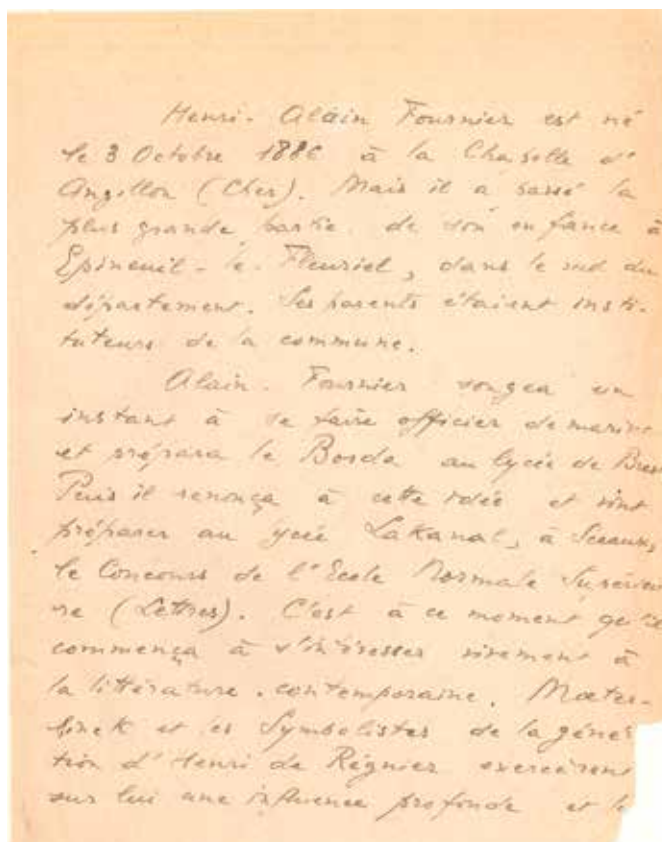 Henri-Alain Fournier est né
le 3 Octobre 1886 à la Chapelle d'
Angillon (Cher). Mais il a passé la
plus grande partie de son enfance à
Epineuil-le-Fleuriel, dans le sud du
département. Ses parents étaient insti-
tuteurs de la commune.
Alain-Fournier songea un
instant à se faire officier de marine
et prépara le Borda au lycée de Brest
Puis il renonça à cette idée et vint
préparer au lycée Lakanal, à Sceaux,
le Concours de l'Ecole Normale Supérieu
re (Lettres). C'est à ce moment qu'il
commença à s'intéresser vivement à
la littérature contemporaine. Mæter-
linck et les Symbolistes de la généra
tion d'Henri de Régnier exercèrent
sur lui une influence profonde et le